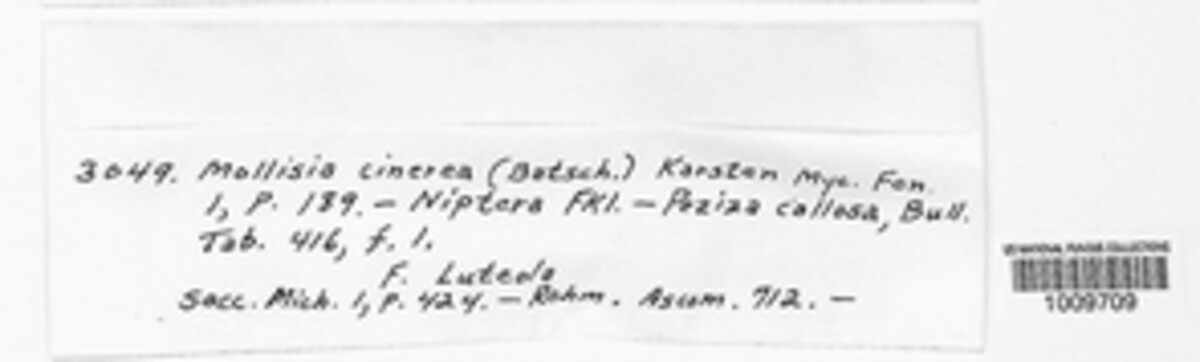 3049. Mollisia cinerea (Batsch.) Karsten Myc. Fen.
1, P. 189. — Niptera Fkl. — Peziza callosa, Bull.
Tab. 416, f. 1.
F. Luteola
Sacc. Mich. 1, P. 424. — Rehm. Ascom. 712. —
US NATIONAL FUNGUS COLLECTIONS
1009709